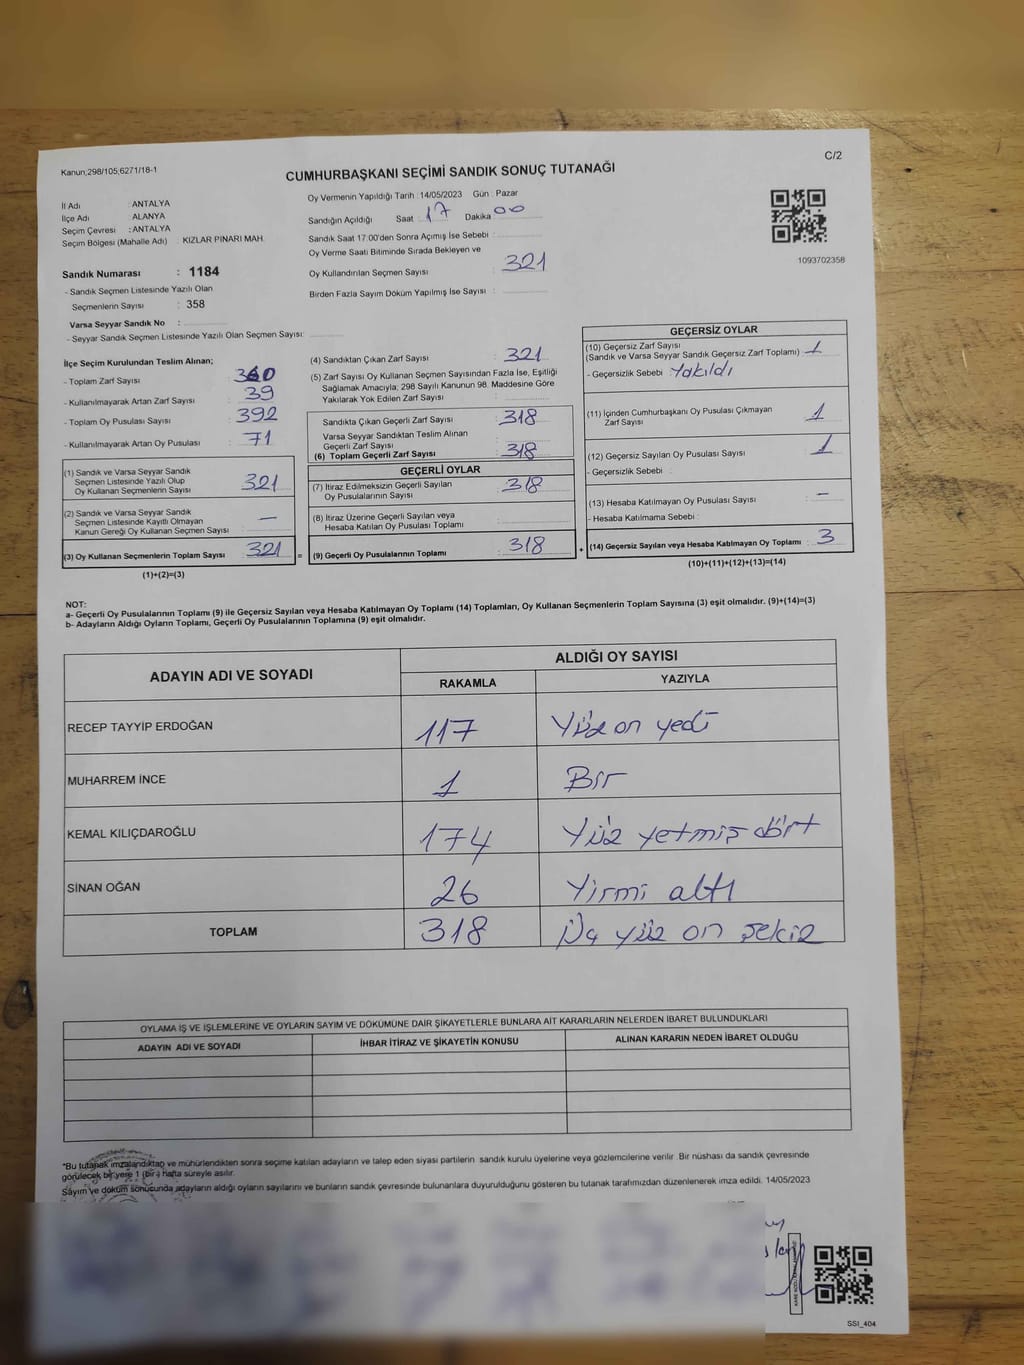 Kanun,298/105,6271/18-1
C/2
CUMHURBAŞKANI SEÇİMİ SANDIK SONUÇ TUTANAĞI
İl Adı : ANTALYA
İlçe Adı : ALANYA
Seçim Çevresi : ANTALYA
Seçim Bölgesi (Mahalle Adı) : KIZLAR PINARI MAH.
Sandık Numarası : 1184
- Sandık Seçmen Listesinde Yazılı Olan
Seçmenlerin Sayısı : 358
Varsa Seyyar Sandık No :
- Seyyar Sandık Seçmen Listesinde Yazılı Olan Seçmen Sayısı:
Oy Vermenin Yapıldığı Tarih : 14/05/2023 Gün : Pazar
Sandığın Açıldığı Saat : 17 Dakika : 00
Sandık Saat 17.00'den Sonra Açımış İse Sebebi :
Oy Verme Saati Bitiminde Sırada Bekleyen ve
Oy Kullandırılan Seçmen Sayısı : 321
Birden Fazla Sayım Döküm Yapılmış İse Sayısı :
1093702358
İlçe Seçim Kurulundan Teslim Alınan;
- Toplam Zarf Sayısı : 360
- Kullanılmayarak Artan Zarf Sayısı : 39
- Toplam Oy Pusulası Sayısı : 392
- Kullanılmayarak Artan Oy Pusulası : 71
(1) Sandık ve Varsa Seyyar Sandık
Seçmen Listesinde Yazılı Olup
Oy Kullanan Seçmenlerin Sayısı : 321
(2) Sandık ve Varsa Seyyar Sandık
Seçmen Listesinde Kayıtlı Olmayan
Kanun Gereği Oy Kullanan Seçmen Sayısı : —
(3) Oy Kullanan Seçmenlerin Toplam Sayısı : 321 =
(1)+(2)=(3)
(4) Sandıktan Çıkan Zarf Sayısı : 321
(5) Zarf Sayısı Oy Kullanan Seçmen Sayısından Fazla İse, Eşitliği
Sağlamak Amacıyla; 298 Sayılı Kanunun 98. Maddesine Göre
Yakılarak Yok Edilen Zarf Sayısı :
Sandıkta Çıkan Geçerli Zarf Sayısı : 318
Varsa Seyyar Sandıktan Teslim Alınan
Geçerli Zarf Sayısı :
(6) Toplam Geçerli Zarf Sayısı : 318
GEÇERLİ OYLAR
(7) İtiraz Edilmeksizin Geçerli Sayılan
Oy Pusulalarının Sayısı : 318
(8) İtiraz Üzerine Geçerli Sayılan veya
Hesaba Katılan Oy Pusulası Toplamı :
(9) Geçerli Oy Pusulalarının Toplamı : 318 +
GEÇERSİZ OYLAR
(10) Geçersiz Zarf Sayısı
(Sandık ve Varsa Seyyar Sandık Geçersiz Zarf Toplamı) : 1
- Geçersizlik Sebebi : Yakıldı
(11) İçinden Cumhurbaşkanı Oy Pusulası Çıkmayan
Zarf Sayısı : 1
(12) Geçersiz Sayılan Oy Pusulası Sayısı : 1
- Geçersizlik Sebebi :
(13) Hesaba Katılmayan Oy Pusulası Sayısı : —
- Hesaba Katılmama Sebebi :
(14) Geçersiz Sayılan veya Hesaba Katılmayan Oy Toplamı : 3
(10)+(11)+(12)+(13)=(14)
NOT:
a- Geçerli Oy Pusulalarının Toplamı (9) ile Geçersiz Sayılan veya Hesaba Katılmayan Oy Toplamı (14) Toplamları, Oy Kullanan Seçmenlerin Toplam Sayısına (3) eşit olmalıdır. (9)+(14)=(3)
b- Adayların Aldığı Oyların Toplamı, Geçerli Oy Pusulalarının Toplamına (9) eşit olmalıdır.
ADAYIN ADI VE SOYADI
ALDIĞI OY SAYISI
RAKAMLA YAZIYLA
RECEP TAYYİP ERDOĞAN 117 Yüz on yedi
MUHARREM İNCE 1 Bir
KEMAL KILIÇDAROĞLU 174 Yüz yetmiş dört
SİNAN OĞAN 26 Yirmi altı
TOPLAM 318 Üç yüz on sekiz
OYLAMA İŞ VE İŞLEMLERİNE VE OYLARIN SAYIM VE DÖKÜMÜNE DAİR ŞİKAYETLERLE BUNLARA AİT KARARLARIN NELERDEN İBARET BULUNDUKLARI
ADAYIN ADI VE SOYADI İHBAR İTİRAZ VE ŞİKAYETİN KONUSU ALINAN KARARIN NEDEN İBARET OLDUĞU
*Bu tutanak imzalandıktan ve mühürlendikten sonra seçime katılan adayların ve talep eden siyasi partilerin sandık kurulu üyelerine veya gözlemcilerine verilir. Bir nüshası da sandık çevresinde
görülecek bir yere 1 (bir) hafta süreyle asılır.
Sayım ve döküm sonucunda adayların aldığı oyların sayılarını ve bunların sandık çevresinde bulunanlara duyurulduğunu gösteren bu tutanak tarafımızdan düzenlenerek imza edildi. 14/05/2023
SSI_404